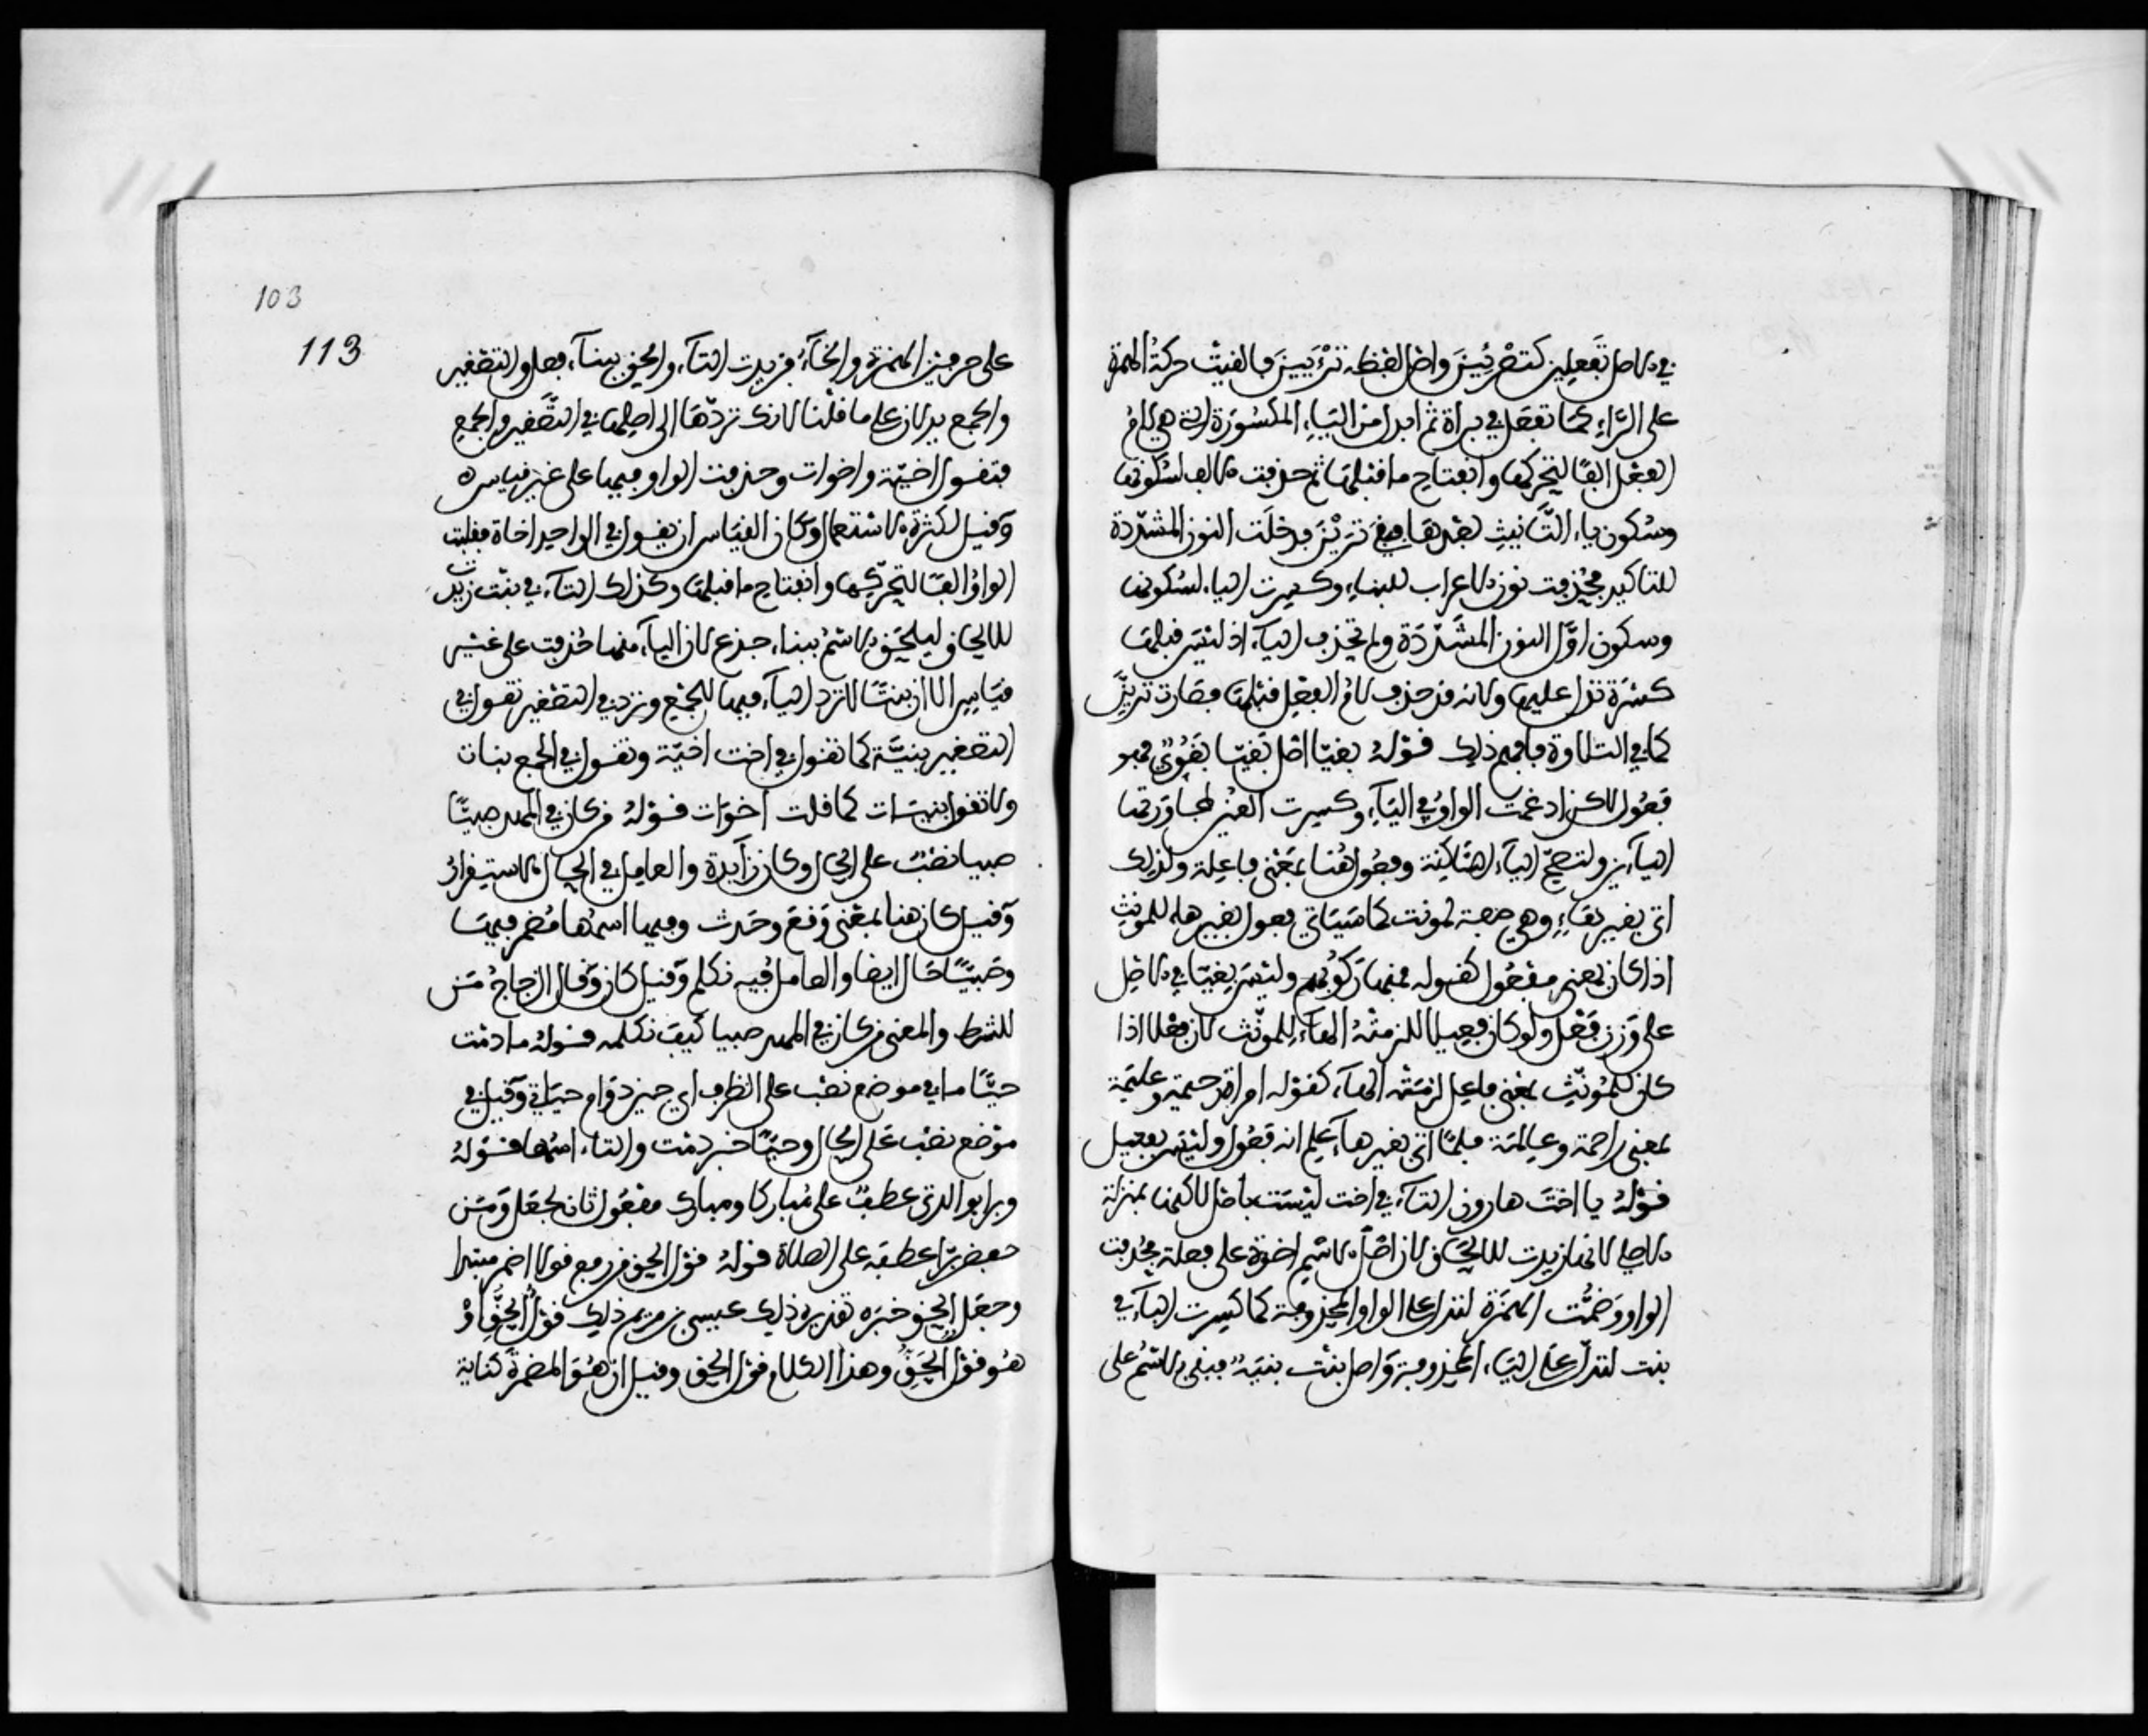 في الاصل تَفعلِين كتضْرِبِينَ واصْل لفظه تَرْءَيِينَ فالقيتْ حركةُ الهمزة
على الرَّاءِ كما تفعل في براة ثم ابدل من اليَاءِ المكسُورَة التي هي لامُ
الفِعْل الفًا لتحركها وانفتاح ما قبلها ثم حذفت الالف لسُكونها
وسُكون ياء التَّانيثِ بَعْدهَا فبقيَ تَرَيْنَ فدخلَت النون المشدّدة
للتاكيد فحُذفت نون الاعراب للبِناءِ وكسرت الياء لسُكونها
وسكون اوَّل النون المشَدّدَة ولم تحْذف اليآء اذ ليْسَ قبلهَا
كسْرَة تدل عليها ولانه قد حذف لامُ الفِعْل قبْلهَا فصَارت تريِنَّ
كما في التلاوة فافهم ذلك قوْلهُ بغيّا اصْل بَغيّا بَغُوْيٌ فهو
فَعُول لاكن ادغمت الواوُ في اليَآءِ وكسرت الغيْن لمجاوَرتهَا
اليآء ولتصِحّ اليآء السَّاكِنة وفعُول هُنا بمَعْنى فاعِلة ولذلك
اتى بغير هَاءٍ وهي صفة لمونث كما سَيَاتي فعول بغير هاء للمونثِ
اذا كان بمعنى مفْعُول كقوله فمنها رَكوُبهم وليْسَ بغيّا في الاصْل
على وَزن فعِيْل ولو كان فعِيلا للزمتْهُ الهآء للموَنّث لان فعْلا اذا
كان للمُونّثِ بمعْنى فاعِل لزمَتْه الهآء كقوْله امراة رحيمة وعليمَة
بمعنى راحمة وعالمَة فلمَّا اتى بغير هآء عُلِم انه فعُول وليْسَ بفعيل
قوْلهُ يا اختَ هارون التآء في اخت ليْسَتْ باصْل لاكنها بمنزلة
الاصلي لانها زيدت للالحَاق لان اصْل الاسْم اخوَة على فعلة فحُذفت
الواو وضُمّت الهَمْزة لتدل على الواو المحذوفة كما كسِرت البآء في
بنت لتدلّ على اليَاء المحذوفة وَاصل بنْت بنيَة فبقي الاسْم على
103
113
على حرفين الهمزة والخآءُ فزيدت التآء والحق ببنآء فعل والتصْغير
والجمع يدلان على ما قلْنا لانك تردّهَا الى اصلها في التَّصْغير والجمع
فتقول اخيّة واخوات وحذفت الواو فيها على غير قياس
وَقيل لكثرة الاستعمال وَكان القيَاس ان يقول في الواحِد اخاة فقلبت
الواوُ الفًا لتحَرّكهَا وانفتاح ما قبلها وكذلك التآء في بنْت زيدت
للالحاق ليلحَق الاسْمُ ببناء جذع لان اليآء منها حُذفت على غيْر
قيَاسٍ الا ان بنتًا لا ترد اليآء فيها للجَمْع وتردّ في التصْغير تقول في
التصغير بنيَّة كما تقول في اخت اخيّة وتقول في الجمع بنات
ولا تقول بنيَات كما قلت اخوَات قوْلهُ من كان في المَهد صبيًّا
صبيا نصْبٌ على الحال وكان زَايدة والعامل في الحال الاستِقرارُ
وَقيل كان هنا بمعْنى وَقع وحَدث وفيها اسْمهَا مُضمر فيهَا
وصَبيًّا حَال ايضا والعامل فيه نكلم وَقيل كان وَقال الزجاجُ مَن
للشرط والمعنى من كان في المهد صبيا كيفَ نكلمه قوْلهُ ما دمْت
حيًّا ما في موضع نصْب على الظرف اي حين دوَام حيَاتي وَقيل في
موْضع نصْب على الحال وحيًّا خبر دمْت والتاء اسْمها قوْلهُ
وبرا بوالدتي عطفٌ على مُباركا ومبارك مفعُول ثان لجعَل وَمَن
خفض برّا عطفهُ على الصلاة قولهُ قوْل الحق من رفع قولا اضمر مبتدا
وجعَل الحق خبَره تقديره ذلك عيسى بن مريم ذلك قوْلُ الحَقِّ اوْ
هُو قوْلُ الحَقِّ وهذا الكلام قوْل الحق وقيل ان هُوَ المضمرةَ كناية